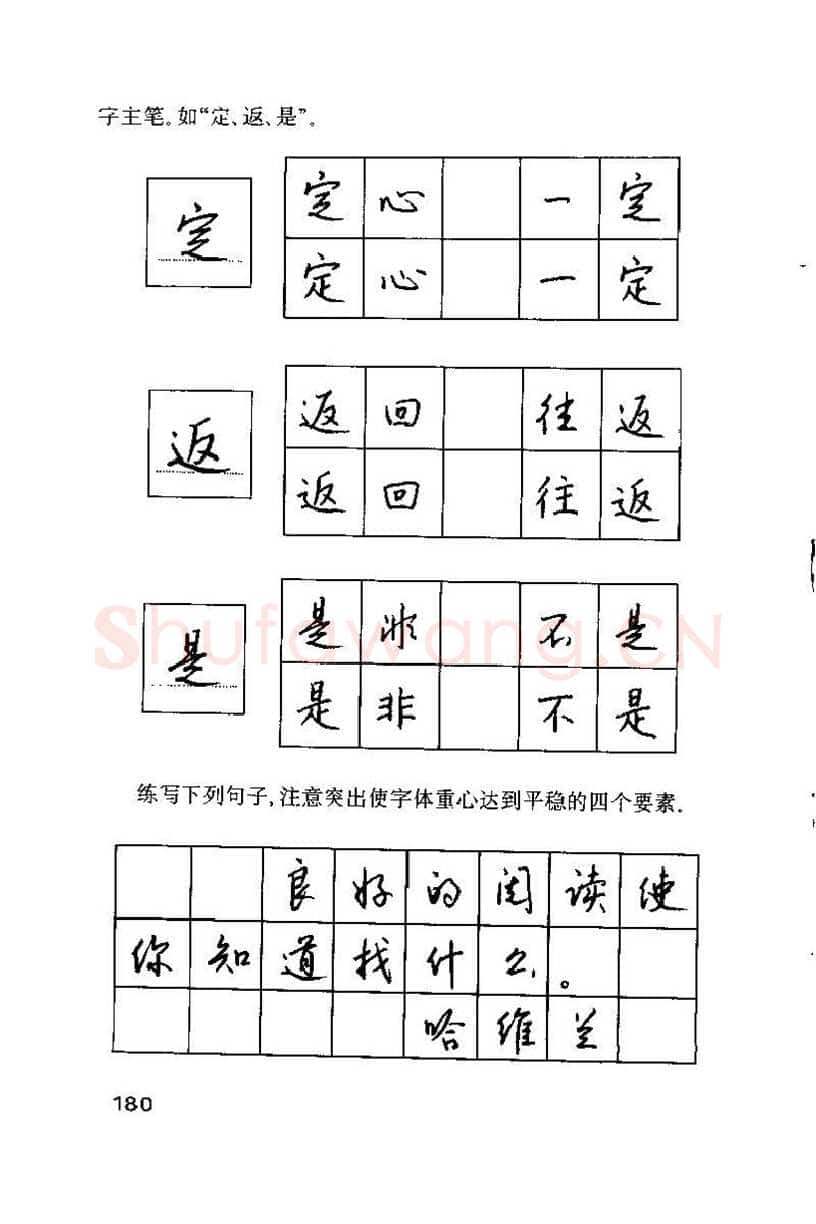 字主笔。如“定、返、是”。
定
定心 一定
定心 一定
返
返回 往返
返回 往返
是
是非 不是
是非 不是
shufawang.CN
练写下列句子,注意突出使字体重心达到平稳的四个要素.
良好的阅读使
你知道找什么。
哈维兰
180